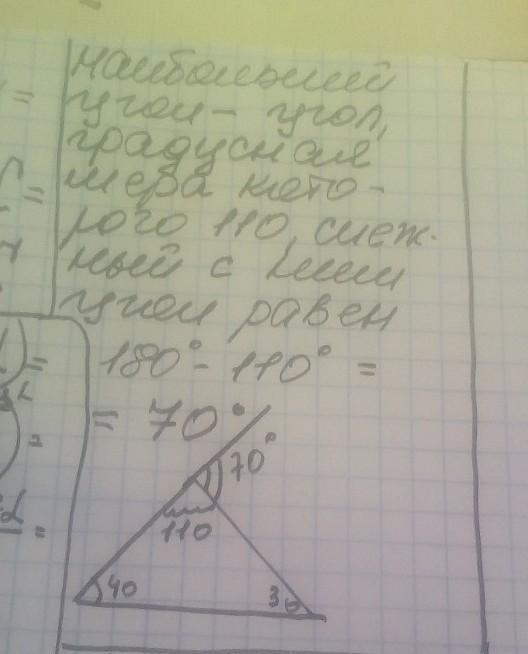 наибольший
угол - угол,
градусная
мера кото-
рого 110, смеж-
ный с ним
угол равен
180° - 110° =
= 70°
70°
110
40
30